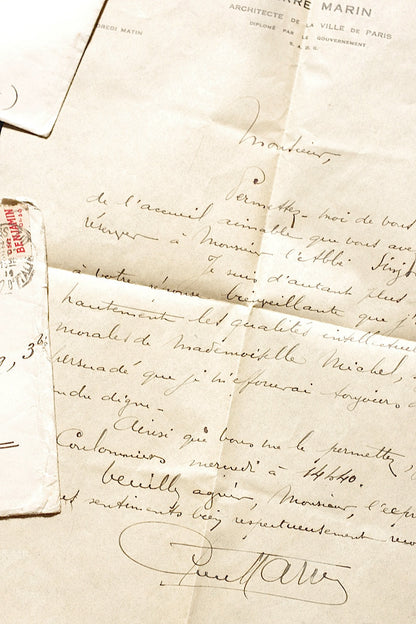 RRE MARIN
ARCHITECTE DE LA VILLE DE PARIS
DIPLOMÉ PAR LE GOUVERNEMENT
S.A.D.G.
REDI MATIN
Monsieur,
Permettez-moi de vous
de l'accueil aimable que vous ave
réserver à Monsieur l'Abbé
Je suis d'autant plus
à votre réponse bienveillante que j'
hautement les qualités intellectue
morales de Mademoiselle Michel,
persuadé que je m'efforcerai toujours d
ndre digne.
Ainsi que vous me le permettez,
Coulommiers mercredi à 14h40.
Veuillez agréer, Monsieur, l'expr
sentiments bien respectueusement
Pierre Marin
BENJAMIN